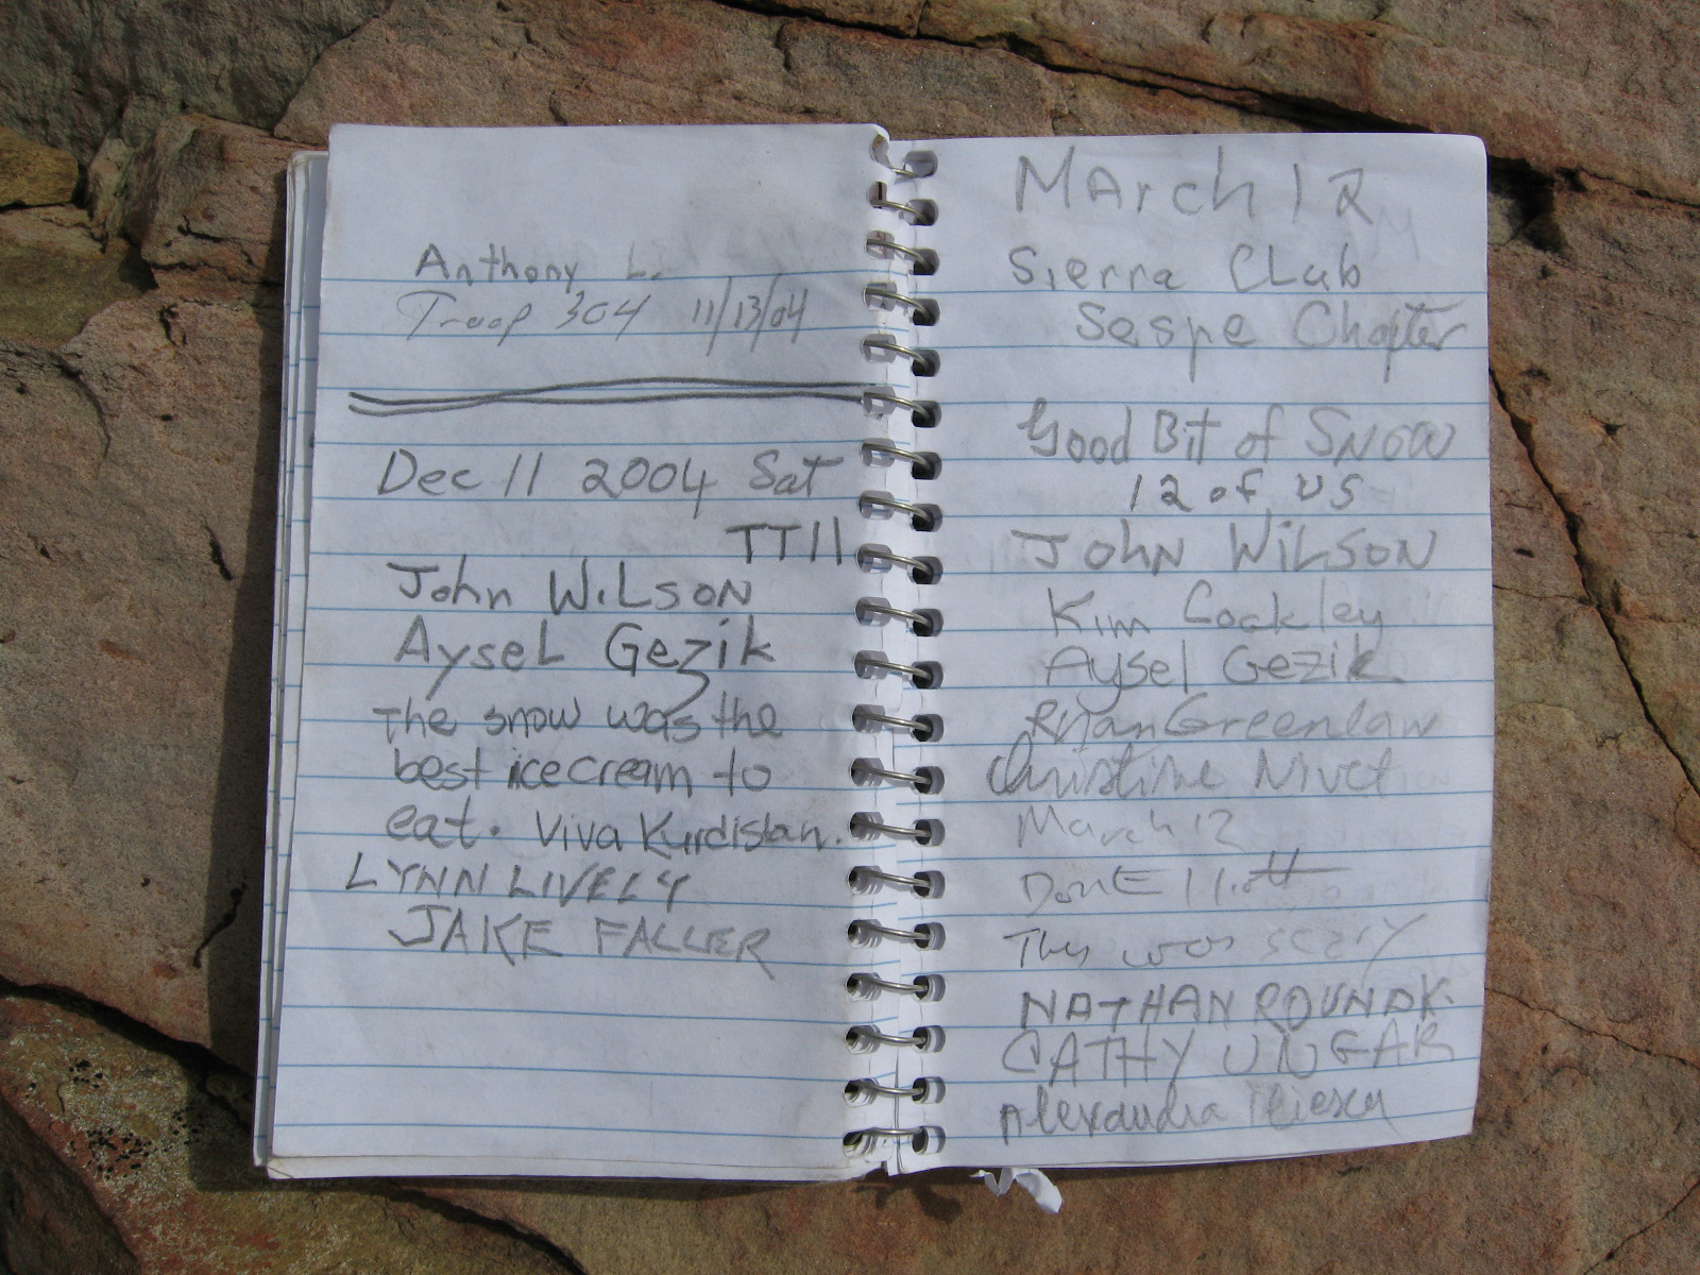 Anthony L.
Troop 304 11/13/04
Dec 11 2004 Sat
TT11
John WiLSON
AyseL Gezik
The snow was the
best icecream to
eat. Viva Kurdistan.
LYNN LIVELY
JAKE FALLER
MArch 12
Sierra CLub
Sespe Chapter
Good Bit of SNOW
12 of us
JOHN WiLSON
Kim Coakley
Aysel Gezik
Ryan Greenlaw
Christine Nivet
March 12
This was scary
NATHAN
CATHY UNGAR
Alexandra